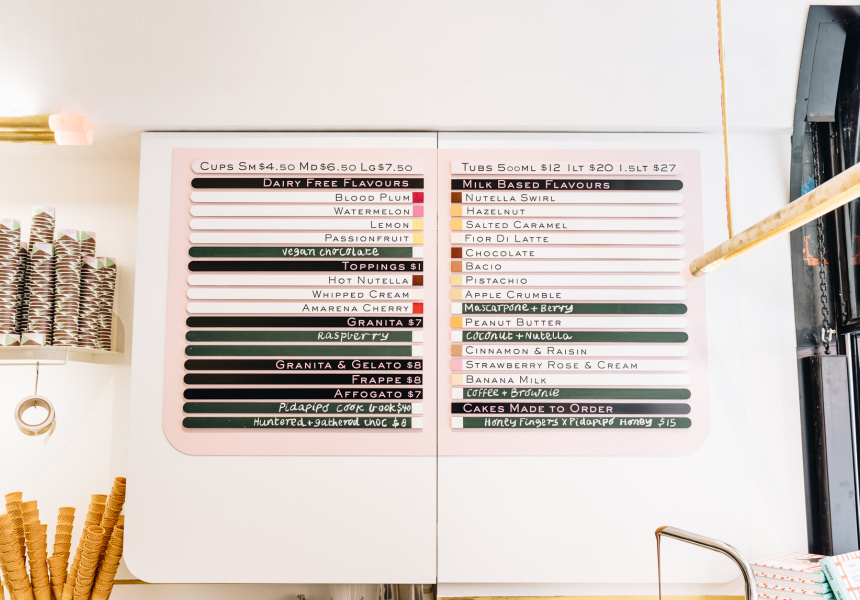 Cups Sm $4.50 Md $6.50 Lg $7.50
Dairy Free Flavours
Blood Plum
Watermelon
Lemon
Passionfruit
Vegan chocolate
Toppings $1
Hot Nutella
Whipped Cream
Amarena Cherry
Granita $7
Raspberry
Granita & Gelato $8
Frappe $8
Affogato $7
Pidapipo cook book $40
Huntered + gathered choc $8
Tubs 500ml $12 1lt $20 1.5lt $27
Milk Based Flavours
Nutella Swirl
Hazelnut
Salted Caramel
Fior Di Latte
Chocolate
Bacio
Pistachio
Apple Crumble
Mascarpone + Berry
Peanut Butter
Coconut + Nutella
Cinnamon & Raisin
Strawberry Rose & Cream
Banana Milk
Coffee + Brownie
Cakes Made to Order
Honey Fingers x Pidapipo Honey $15